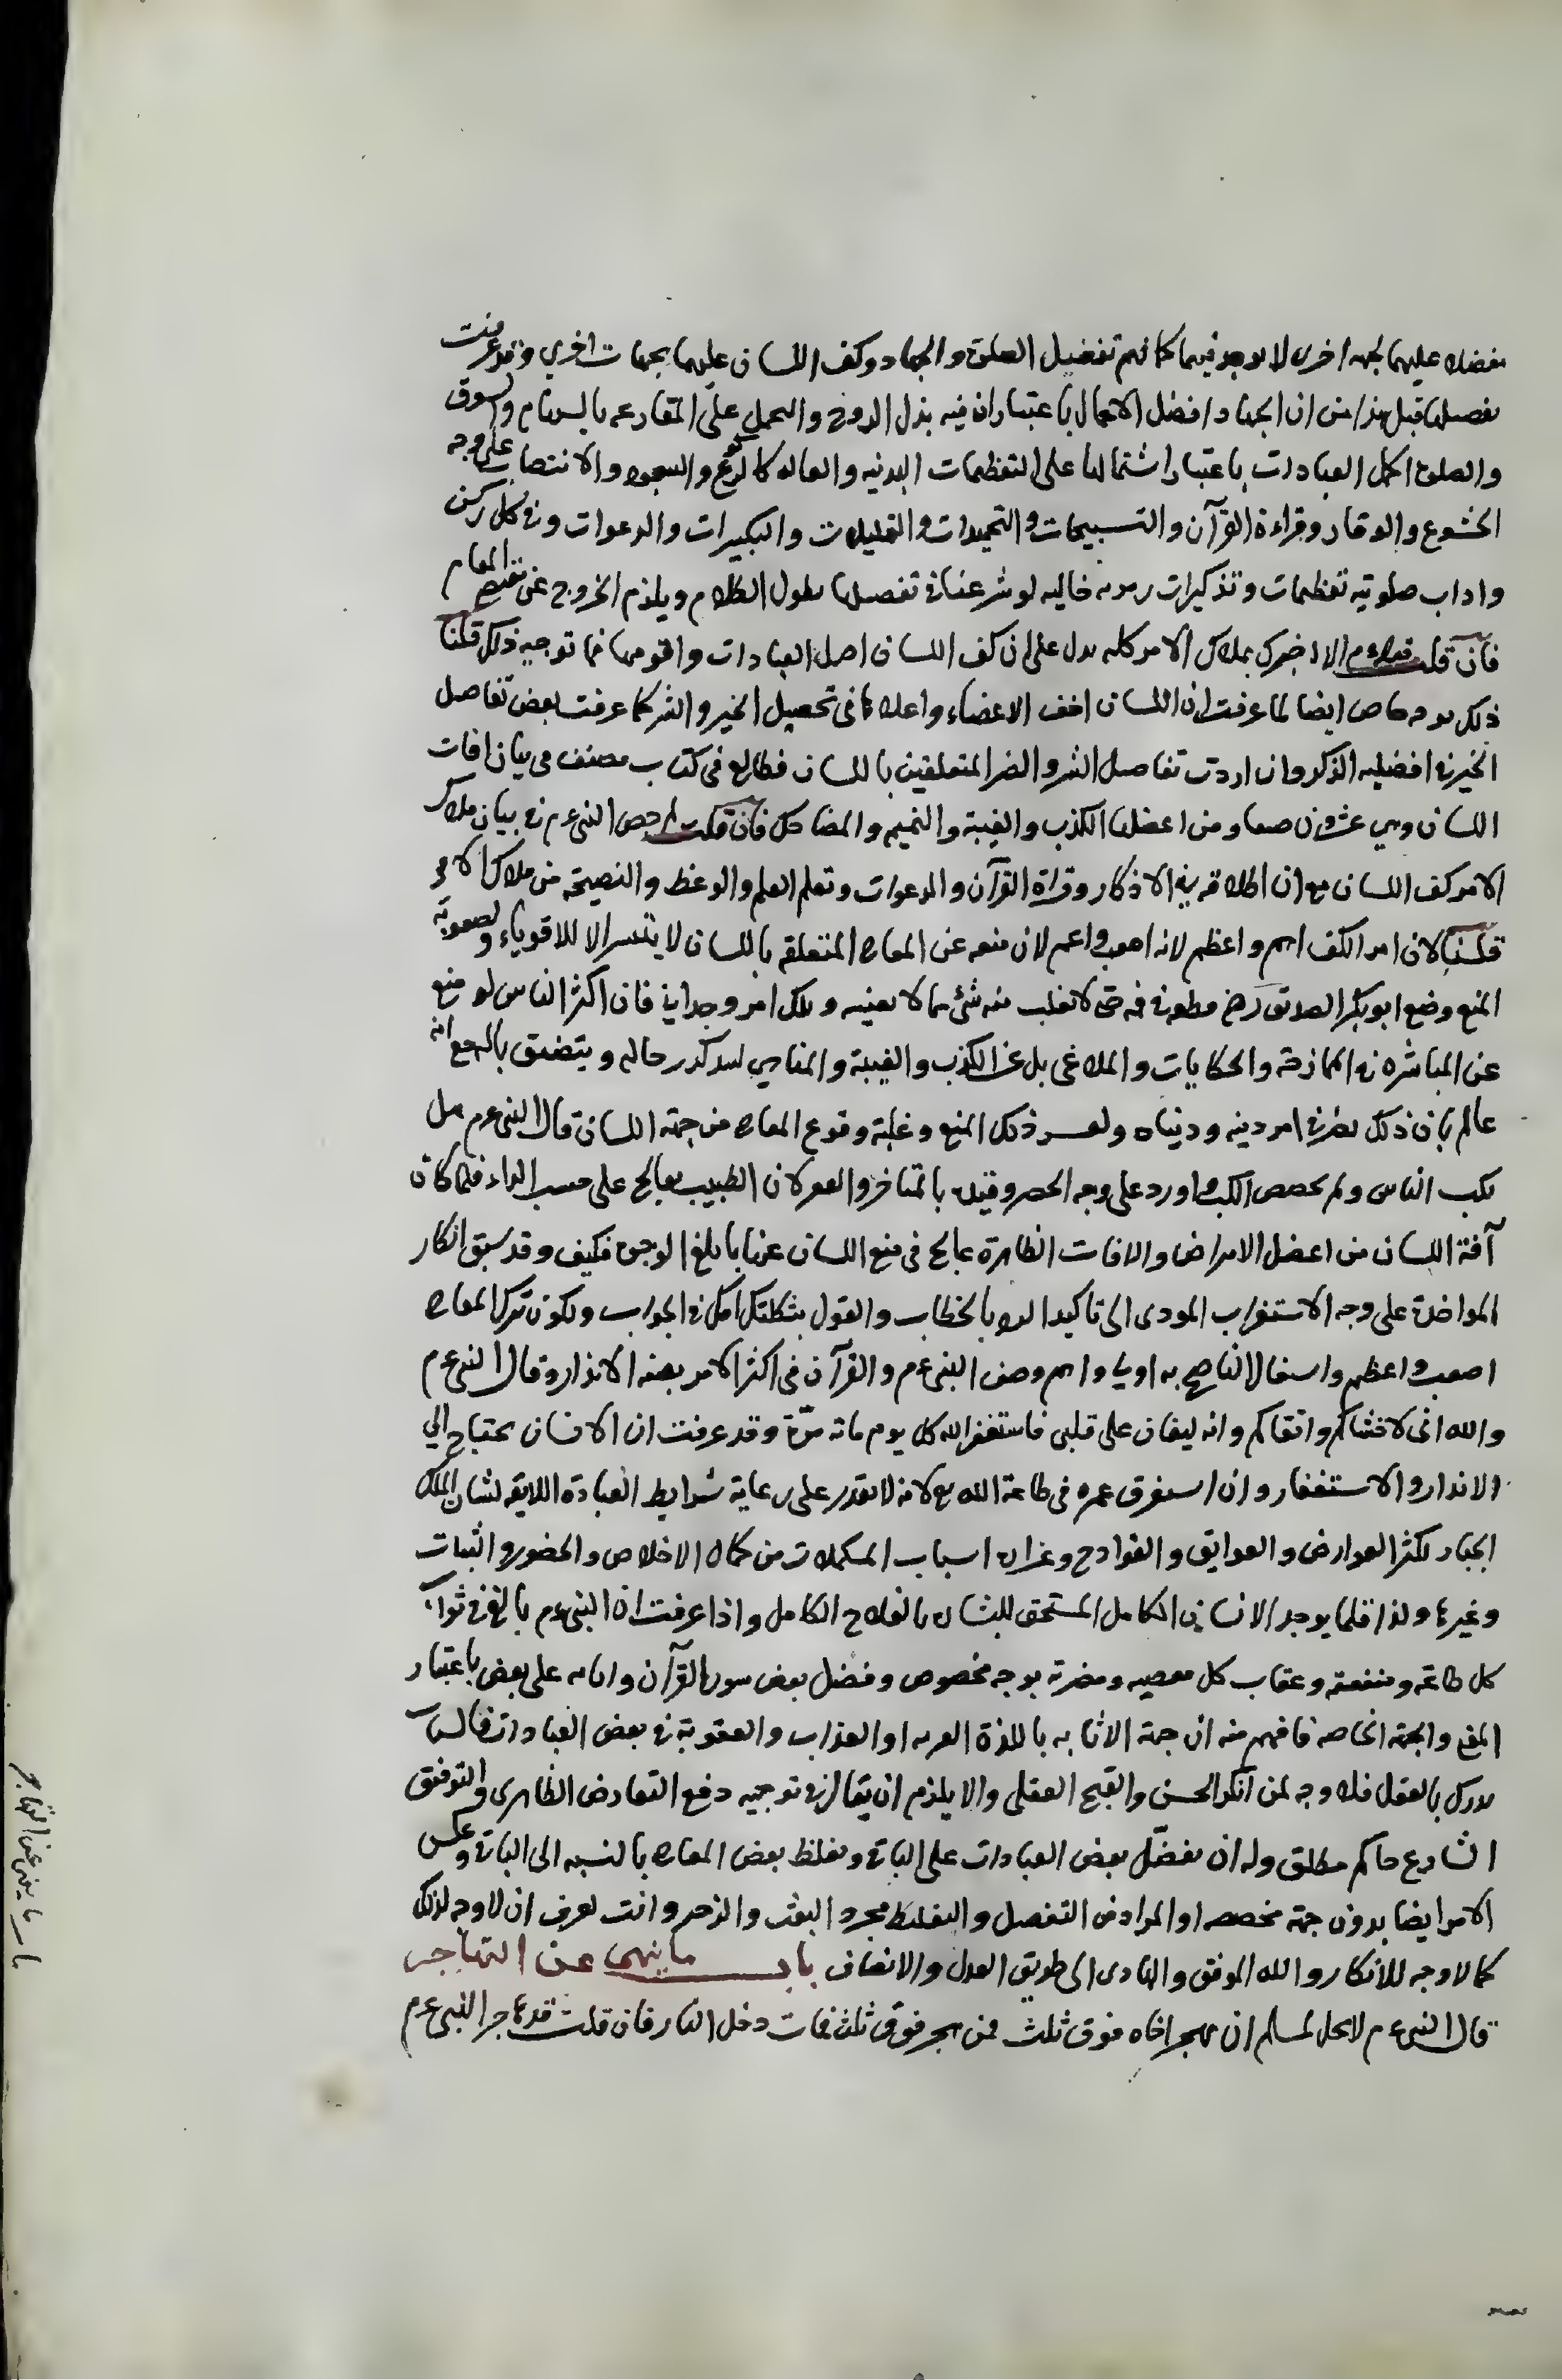 عليهما لجهة اخرى لا يوجد فيهما كما فهم تفضيل الصلوة والجهاد وكف اللسان عليهما بجهات اخرى وقد عرفت
قبل هذا من ان الجهاد افضل الاعمال باعتبار ان فيه بذل الروح والتحمل على المقارعه بالسهام والسيوف
والصلوة اكمل العبادات باعتبار اشتمالها على التعظيمات البدنيه والماليه كالركوع والسجود والانتصاب على وجه
الخشوع والوقار وقراءة القرآن والتسبيحات والتحميدات والتهليلات والتكبيرات والدعوات وفى كل ركن
واداب صلوتيه تعظيمات وتذكيرات خاليه لو شرعنا فى تفصيلها يطول الكلام ويلزم الخروج عن المقام
فان قلت قوله عم الا اخبرك بملاك الامر كله يدل على ان كف اللسان اصل العبادات واقومها فما توجيه ذلك قلنا
ذلك بوجه خاص ايضا لما عرفت ان اللسان اخف الاعضاء واعلاها فى تحصيل الخير والشر كما عرفت بعض تفاصيل
الخير فى افضليه الذكر وان اردت تفاصيل الشر والضر المتعلقين باللسان فطالع فى كتاب مصنف فى بيان افات
اللسان وهي عشرون ومن اعضلها الكذب والغيبة والنميم والمضاحك فان قلت لم خص النبى عم فى بيان ملاك
الامر كف اللسان مع ان اطلاقه فى الاذكار وقراة القرآن والدعوات وتعلم العلم والوعظ والنصيحة من ملاك الامر
قلنا لان امر الكف اهم واعظم لانه اصعب واعم لان منعه عن المعاصى المتعلقه باللسان لا يتيسر الا للاقوياء ولصعوبة
المنع وضع ابو بكر الصديق رضى فى فمه حتى لا تغلب منه شئ مما لا يعنيه وتلك امر وجدانى فان اكثر الناس لو منع
عن المباشره فى الممازحة والحكايات والملاغى بل عن الكذب والغيبة والمناهي حاله ويتضيق بالهم مع انه
عالم بان ذلك يضر فى امر دينه ودنياه ذلك المنع وغلبة وقوع المعاصى من جهة اللسان قال النبى عم هل
يكب الناس ولم يخصص الكب واورد على وجه الحصر وقيد بالمناخر لان الطبيب يعالج على حسب الداء فلما كان
آفة اللسان من اعضل الامراض والافات الظاهرة عالج فى منع اللسان عنها بابلغ الوجوه فكيف وقد سبق انكار
المواخذة على وجه الاستغراب المودى الى تاكيد الرد بالخطاب والقول بثكلتك امك فى الجواب ولكون ترك المعاصى
اصعب واعظم الناصح به اوليا واهم وصف النبى عم والقرآن فى اكثر الامر بصفة الانذار وقال النبى عم
والله انى لاخشاكم واتقاكم وانه ليغان على قلبى فاستغفر الله كل يوم مائة مرة وقد عرفت ان الانسان يحتاج الي
الانذار والاستغفار وان استغرق عمره فى طاعة الله تع لانه لا يقدر على رعاية شرايط العبادة اللايقه لشان الملك
الجبار لكثر العوارض والعوايق والقوادح اسباب المكملات من كمال الاخلاص والحضور والثبات
وغيرها ولذا قلما يوجد الانسان الكامل المستحق للبشاره بالفلاح الكامل واذا عرفت ان النبى عم بالغ فى ثواب
كل طاعة ومنفعته وعقاب كل معصيه ومضرته بوجه مخصوص وفضل بعض سور القرآن واياته على بعض باعتبار
والجهة الخاصه فافهم منه ان جهة الاثابه باللذة او العذاب والعقوبة فى بعض العبادات
يدرك بالعقل فلا وجه لمن انكر الحسن والقبح العقلى والا يلزم ان يقال فى توجيه دفع التعارض الظاهرى والتوفيق
الشارع حاكم مطلق وله ان يفضل بعض العبادات على الباقى ويغلظ بعض المعاصى بالنسبه الى الباقى وعكس
الامر ايضا بدون جهة مخصصه او المراد من التفصيل والتغليظ مجرد والزجر وانت تعرف ان لا وجه لذلك
كما لا وجه للانكار والله الموفق والهادى الى طريق العدل والانصاف باب ما ينهى عن التهاجر
قال النبى عم لا يحل لمسلم ان يهجر اخاه فوق ثلث فمن هجر فوق ثلث فمات دخل النار فان قلت قد هاجر النبى عم
باب ما ينهى عن التهاجر